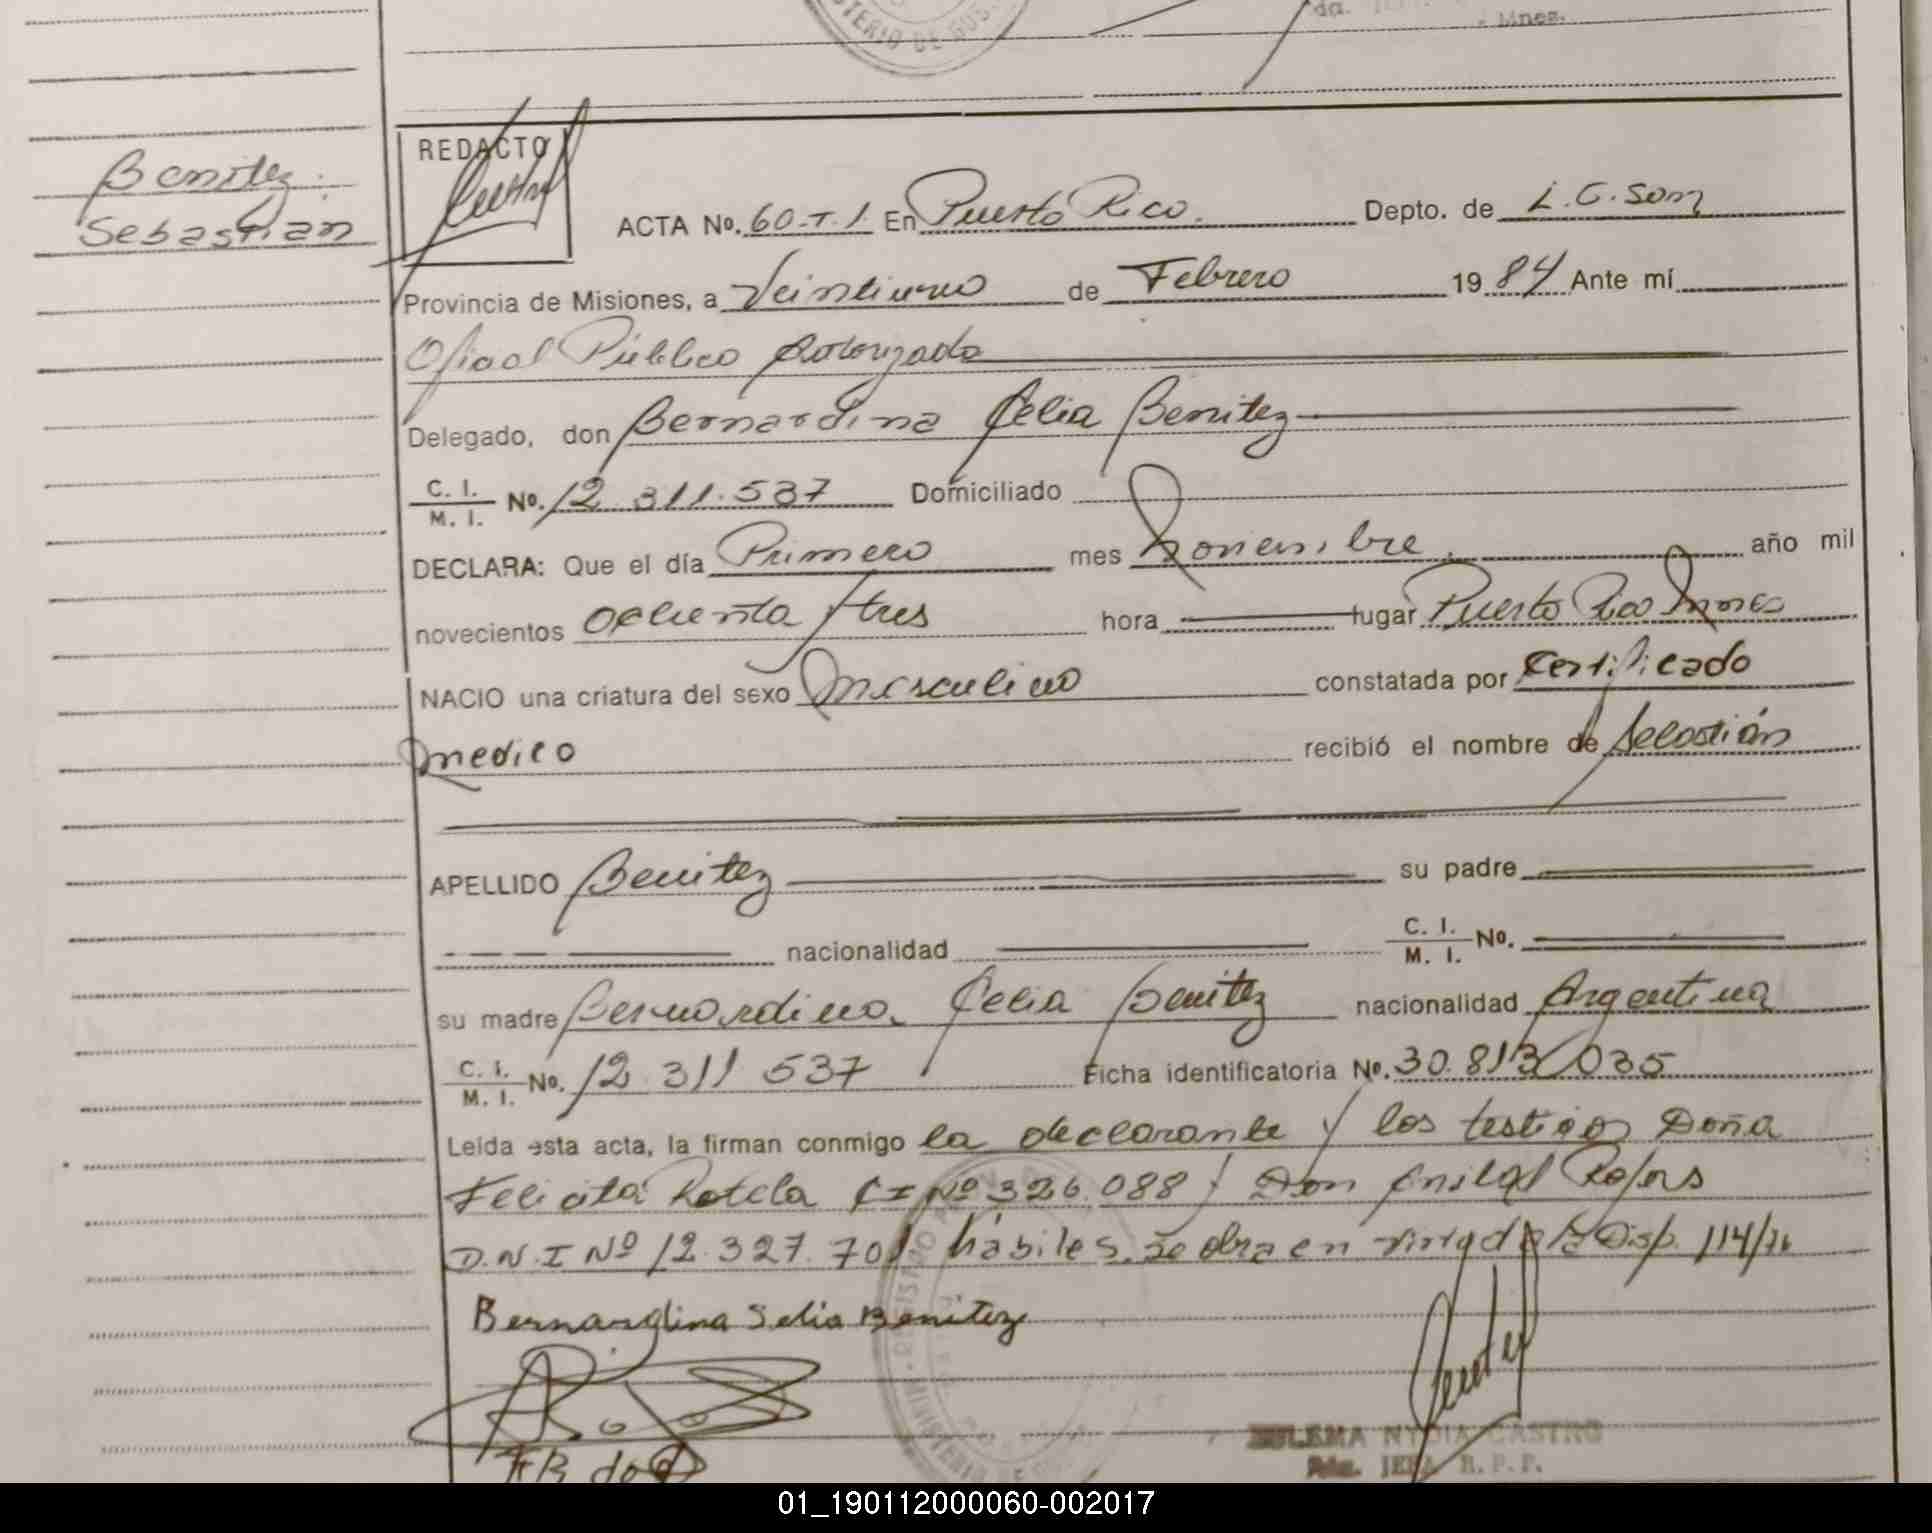 MINISTERIO DE GOB
Mnes.
Benitez
Sebastian
REDACTO
ACTA No. 60-T.1. En Puerto Rico. Depto. de L.G.Sm
Provincia de Misiones, a Veintiuno de Febrero 1984 Ante mí
Oficial Público Autorizado
Delegado, don Bernardina Celia Benitez
C. I.
M. I. No. 12.311.537 Domiciliado
DECLARA: Que el día Primero mes Noviembre año mil
novecientos ochenta y tres hora lugar Puerto Rico Mnes
NACIO una criatura del sexo Masculino constatada por Certificado
medico recibió el nombre de Sebastián
APELLIDO Benitez su padre
nacionalidad C. I.
M. I. No.
su madre Bernardina Celia Benitez nacionalidad Argentina
C. I.
M. I. No. 12.311 537 Ficha identificatoria No. 30.813/035
Leída esta acta, la firman conmigo la declarante y los testigos Doña
Felicita Rotela CI Nº 326.088 y Don Rojas
D.N.I Nº 12.327.701 hábiles. Se obra en Disp. 114/76
Bernardina Selia Benitez
ZULEMA NYDIA CASTRO
JEFA R.P.P.
01_190112000060-002017